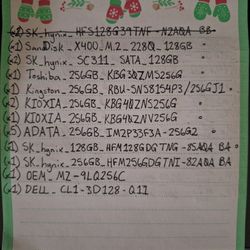 (x2) SK_hynix_HFS128G39TNF-N2A0A BB
(x1) SanDisk_X400_M.2_2280_128GB
(x2) SK_hynix_SC311_SATA_128GB
(x1) Toshiba_256GB_KBG30ZMS256G
(x1) Kingston_256GB_RBU-SNS8154P3/256GJ1
(x2) KIOXIA_256GB_KBG40ZNS256G
(x1) KIOXIA_256GB_KBG40ZNV256G
(x5) ADATA_256GB_IM2P33F3A-256G2
(x1) SK_hynix_128GB_HFM128GDGTNG-85A0A BA
(x1) SK_hynix_256GB_HFM256GDGTNI-82A0A BA
(x1) OEM_M2-9LQ256C
(x1) DELL_CL1-3D128-Q11